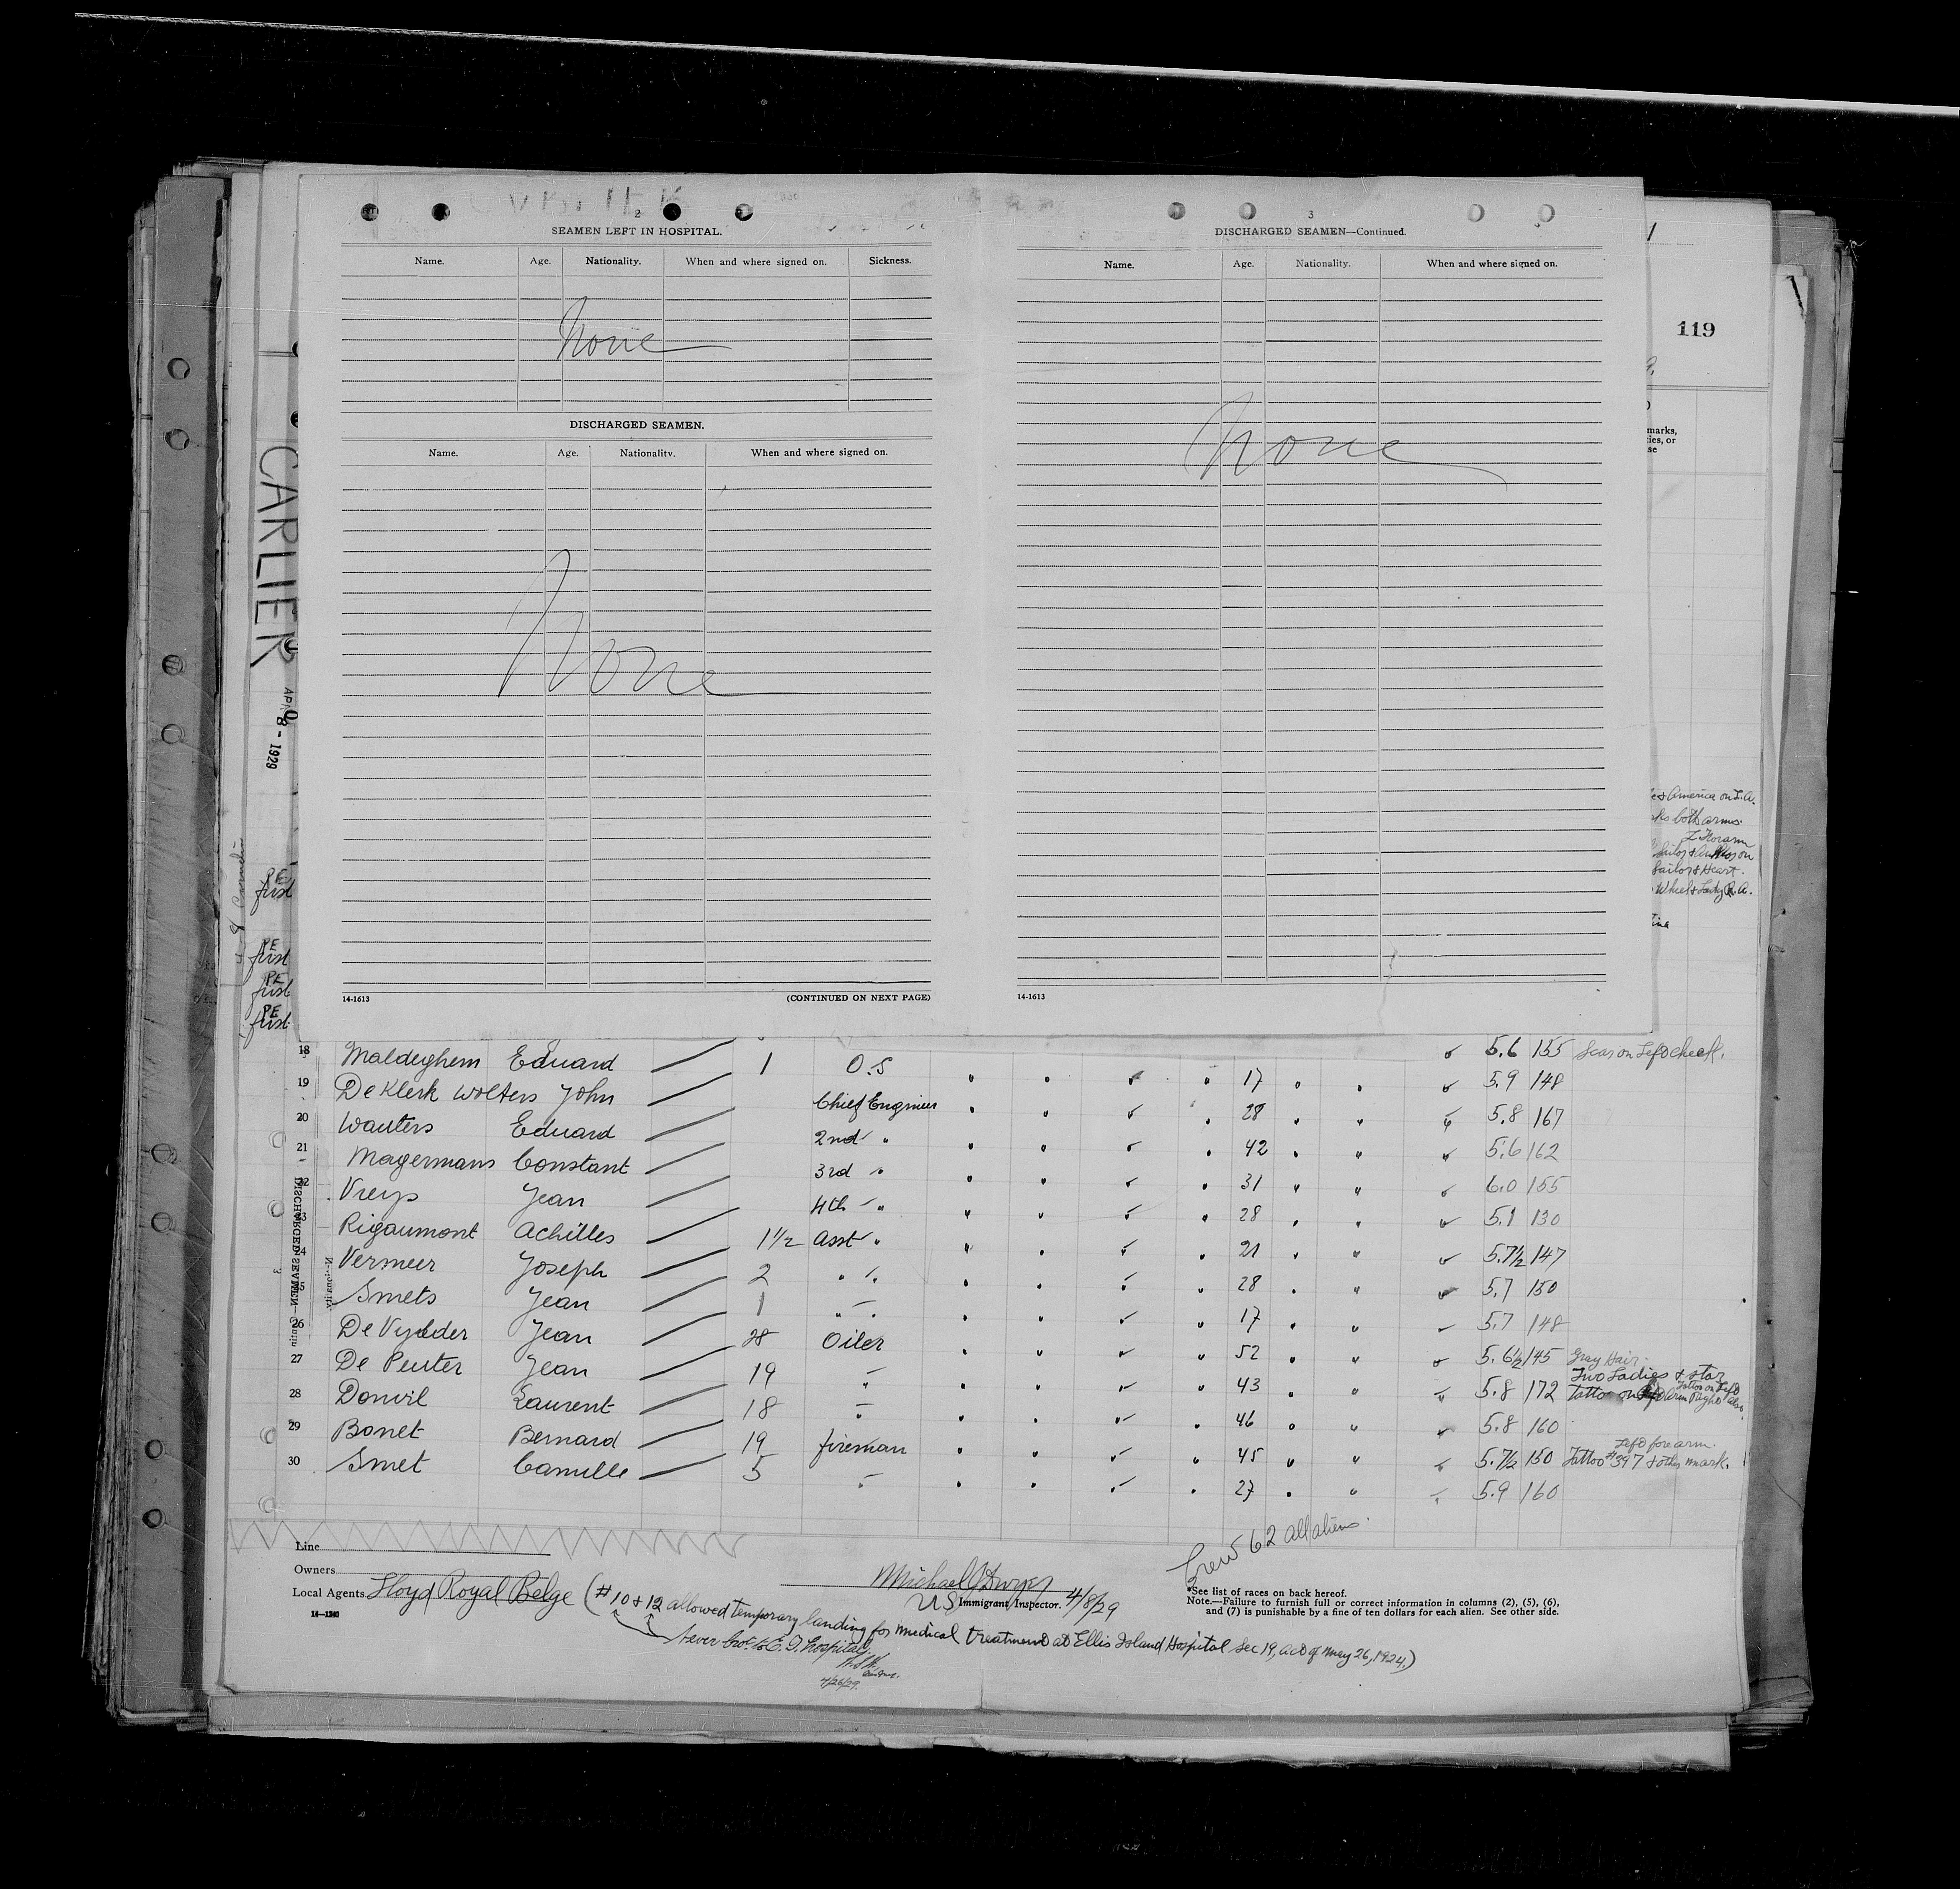 2
SEAMEN LEFT IN HOSPITAL.
Name. Age. Nationality. When and where signed on. Sickness.
None
DISCHARGED SEAMEN.
Name. Age. Nationality. When and where signed on.
None
14-1613 (CONTINUED ON NEXT PAGE)
3
DISCHARGED SEAMEN—Continued.
Name. Age. Nationality. When and where signed on.
None
14-1613
119
marks,
ies, or
se
& America on L.A.
both arms.
Sailor & Heart.
Wheel & Lady R.A.
CARLIER
APR 8 - 1929
PE
first
PE
first
PE
first
PE
first
18 Maldeghem Eduard 1 O.S 17 5.6 155 Scar on Left cheek.
19 De Klerk Wolters John Chief Engineer 28 5.9 148
20 Wauters Eduard 2nd " 42 5.8 167
21 Magermans Constant 3rd " 31 5.6 162
22 Vreys Jean 4th " 28 6.0 155
23 Rigaumont Achilles 1½ Asst " 21 5.1 130
24 Vermeer Joseph 2 " " 28 5.7½ 147
25 Smets Jean 1 " " 17 5.7 150
26 De Vydder Jean 28 Oiler 52 5.7 148
27 De Peuter Jean 19 " 43 5.6½ 145 Gray Hair.
28 Donvil Laurent 18 " 46 5.8 172 Two Ladies & star
29 Bonet Bernard 19 fireman 45 5.8 160
30 Smet Camille 5 " 27 5.7½ 150 Tattoo #397 & other mark. Left forearm.
5.9 160
Crew 62 all aliens.
Line
Owners
Local Agents Lloyd Royal Belge (#10 & 12 allowed temporary landing for medical treatment at Ellis Island Hospital Sec 19, act of May 26, 1924.)
14—1240
Never bro. to E.I. hospital
4/26/29.
Michael J Dwyer
US Immigrant Inspector. 4/8/29
*See list of races on back hereof.
Note.—Failure to furnish full or correct information in columns (2), (5), (6),
and (7) is punishable by a fine of ten dollars for each alien. See other side.